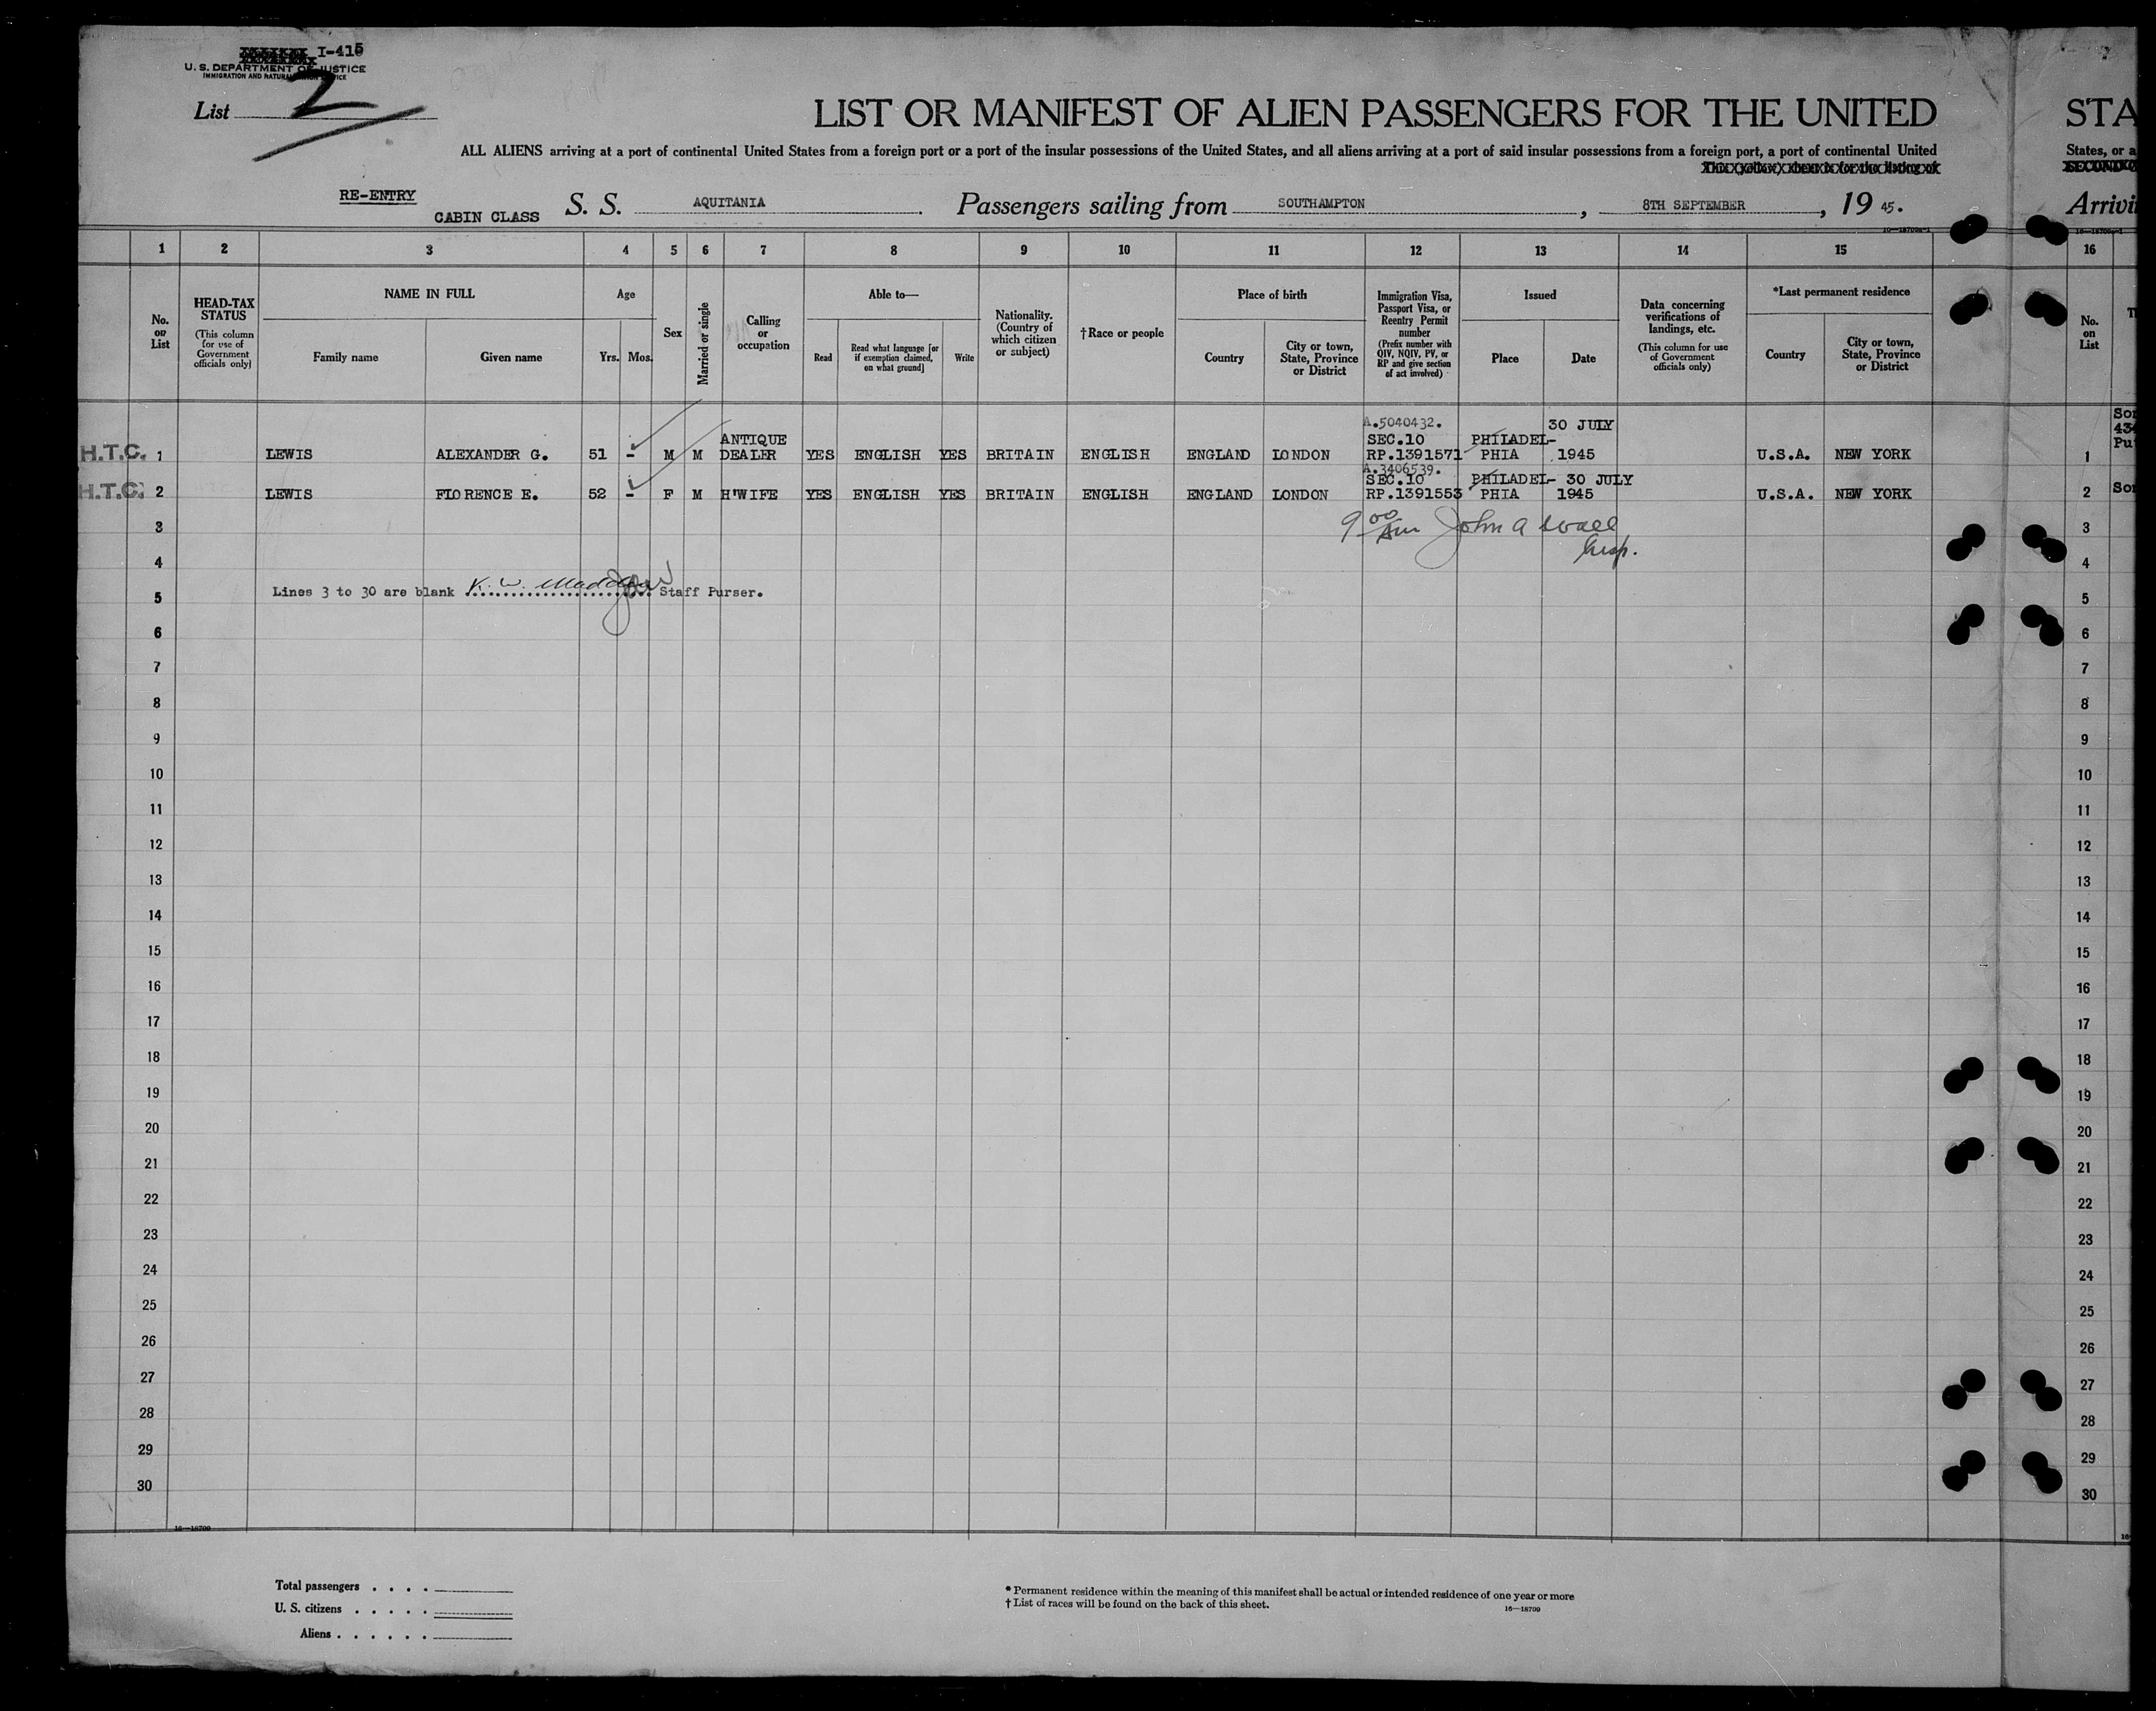 I-415
U. S. DEPARTMENT OF JUSTICE
IMMIGRATION AND NATURALIZATION SERVICE
List 2
LIST OR MANIFEST OF ALIEN PASSENGERS FOR THE UNITED STA
ALL ALIENS arriving at a port of continental United States from a foreign port or a port of the insular possessions of the United States, and all aliens arriving at a port of said insular possessions from a foreign port, a port of continental United States, or a
RE-ENTRY
CABIN CLASS S. S. AQUITANIA Passengers sailing from SOUTHAMPTON, 8TH SEPTEMBER, 19 45. Arrivi
1 2 3 4 5 6 7 8 9 10 11 12 13 14 15 16
No. on List
HEAD-TAX STATUS
(This column for use of Government officials only)
NAME IN FULL
Family name
Given name
Age
Yrs.
Mos.
Sex
Married or single
Calling or occupation
Able to—
Read
Read what language [or if exemption claimed, on what ground]
Write
Nationality. (Country of which citizen or subject)
†Race or people
Place of birth
Country
City or town, State, Province or District
Immigration Visa, Passport Visa, or Reentry Permit number
(Prefix number with QIV, NQIV, PV, or RP and give section of act involved)
Issued
Place
Date
Data concerning verifications of landings, etc.
(This column for use of Government officials only)
*Last permanent residence
Country
City or town, State, Province or District
No. on List
A.5040432. 30 JULY
ANTIQUE SEC.10 PHILADEL-
H.T.C. 1 LEWIS ALEXANDER G. 51 - M M DEALER YES ENGLISH YES BRITAIN ENGLISH ENGLAND LONDON RP.1391571 PHIA 1945 U.S.A. NEW YORK 1
A.3406539.
SEC.10 PHILADEL- 30 JULY
H.T.C. 2 LEWIS FLORENCE E. 52 - F M H'WIFE YES ENGLISH YES BRITAIN ENGLISH ENGLAND LONDON RP.1391553 PHIA 1945 U.S.A. NEW YORK 2
3 9 00 Am John A Wall 3
4 Insp. 4
5 Lines 3 to 30 are blank K. W. Staff Purser. 5
6 6
7 7
8 8
9 9
10 10
11 11
12 12
13 13
14 14
15 15
16 16
17 17
18 18
19 19
20 20
21 21
22 22
23 23
24 24
25 25
26 26
27 27
28 28
29 29
30 30
16—18709
Total passengers . . . .
U. S. citizens . . . . .
Aliens . . . . . .
* Permanent residence within the meaning of this manifest shall be actual or intended residence of one year or more
† List of races will be found on the back of this sheet.
16—18709